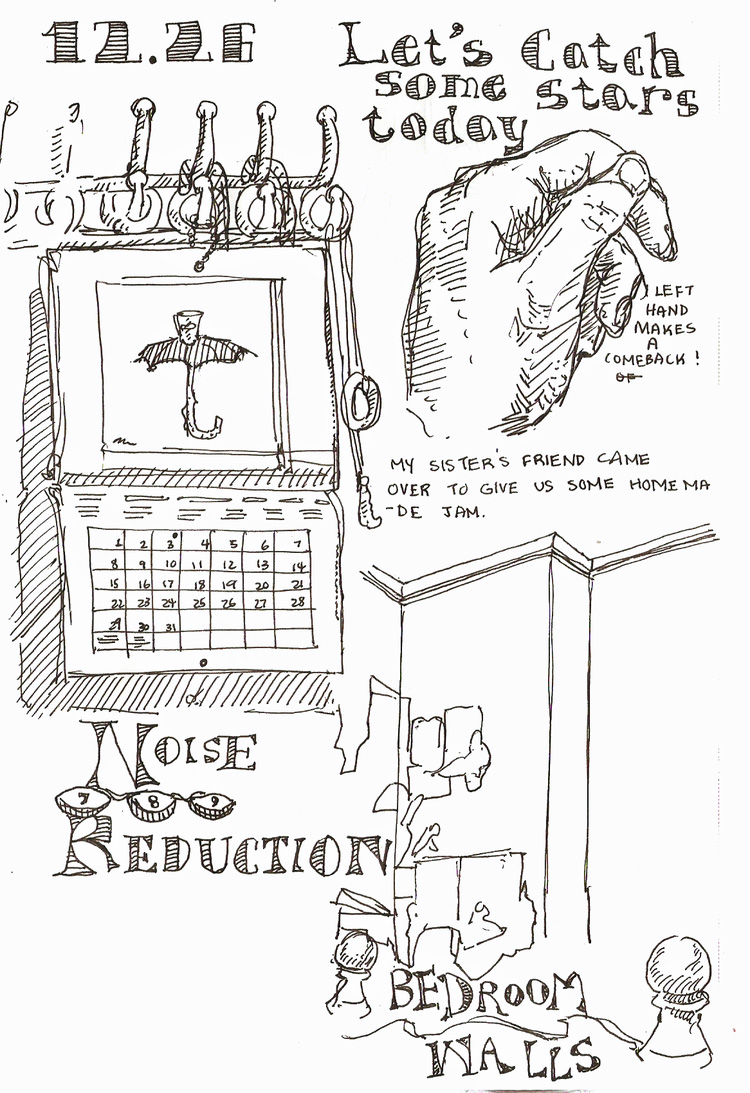 12.26
Let's Catch
some stars
today
LEFT
HAND
MAKES
A
COMEBACK!
OF
MY SISTER'S FRIEND CAME
OVER TO GIVE US SOME HOMEMA
-DE JAM.
1 2 3 4 5 6 7
8 9 10 11 12 13 14
15 16 17 18 19 20 21
22 23 24 25 26 27 28
29 30 31
NOISE
7 8 9
REDUCTION
BEDROOM
WALLS